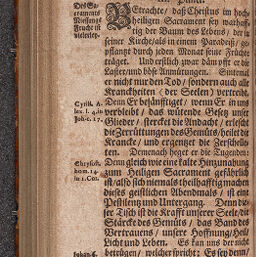 Deß Sa-
craments
Niessung
Frucht ist
vielerley.
Betrachte / daß Christus im hoch-
heiligen Sacrament sey warhaff-
tig der Baum des Lebens / der in
seiner Kirche / als in einem Paradeiß / ge-
pflantzt durch jeden Monat seine Früchte
träget. Und erstlich zwar dämpfft er die
Laster / und böse Anmutungen. Sintemal
er nicht nur den Tod / sondern auch alle
Kranckheiten (der Seelen) vertreibt.
Cyrill. A-
lex. l. 4. in
Joh. c. 17.
Denn Er besänfftiget / wenn Er in uns
verbleibt / das wütende Gesetz unser
Glieder / stercket die Andacht / erlescht
die Zerrüttungen des Gemüts / heilet die
Krancke / und ergentzet die Zerschell-
ten. Demenach heget er die Tugenden:
Chrysost.
hom. 24.
in 1. Cor.
Denn gleich wie eine kalte Hinzunahung
zum Heiligen Sacrament gefährlich
ist / also sich niemals theilhafftig machen
dieses geistlichen Abendmals / ist ein
Pestilentz und Untergang. Denn die-
ser Tisch ist die Krafft unserer Seele / die
Stärcke des Gemüts / das Band des
Vertrauens / unsere Hoffnung / Heil /
Licht und Leben. Es kan uns der nicht
Johan. 6.
betrügen / welcher spricht: Es sey denn /